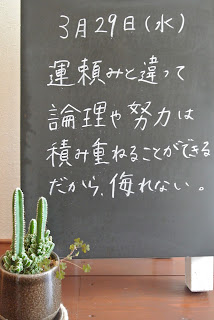 3月29日(水)
運頼みと違って
論理や努力は
積み重ねることができる
だから、侮れない。